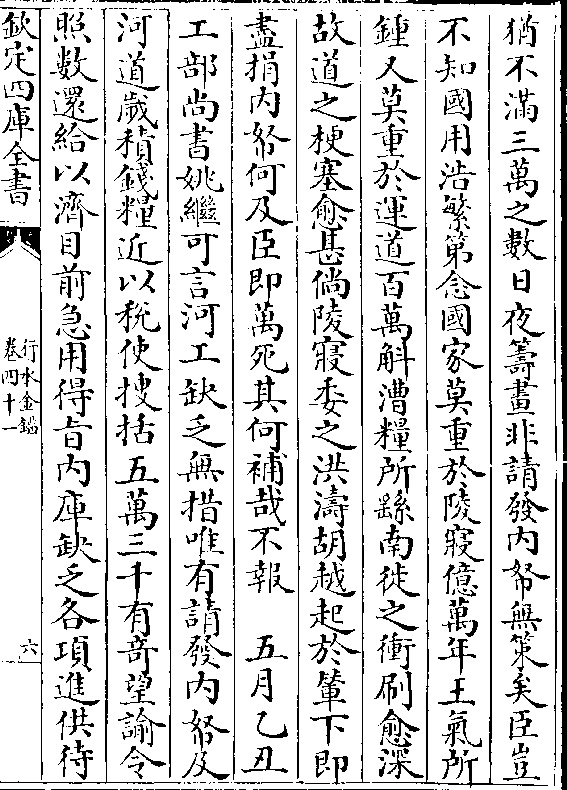 猶不滿三萬之數日夜籌畫非請發内帑無策矣臣豈
不知國用浩繁第念國家莫重於陵寢億萬年王氣所
鍾又莫重於運道百萬斛漕糧所繇南徙之衝刷愈深
故道之梗塞愈甚倘陵寢委之洪濤胡越起於輦下即
盡捐内帑何及臣即萬死其何補哉不報　五月乙丑
工部尚書姚繼可言河工缺乏無措唯有請發内帑及
河道歲積錢糧近以稅使搜括五萬三千有竒望諭令
照數還給以濟目前急用得旨内庫缺乏各項進供待
欽定四庫全書
行水金鑑
卷四十一
六